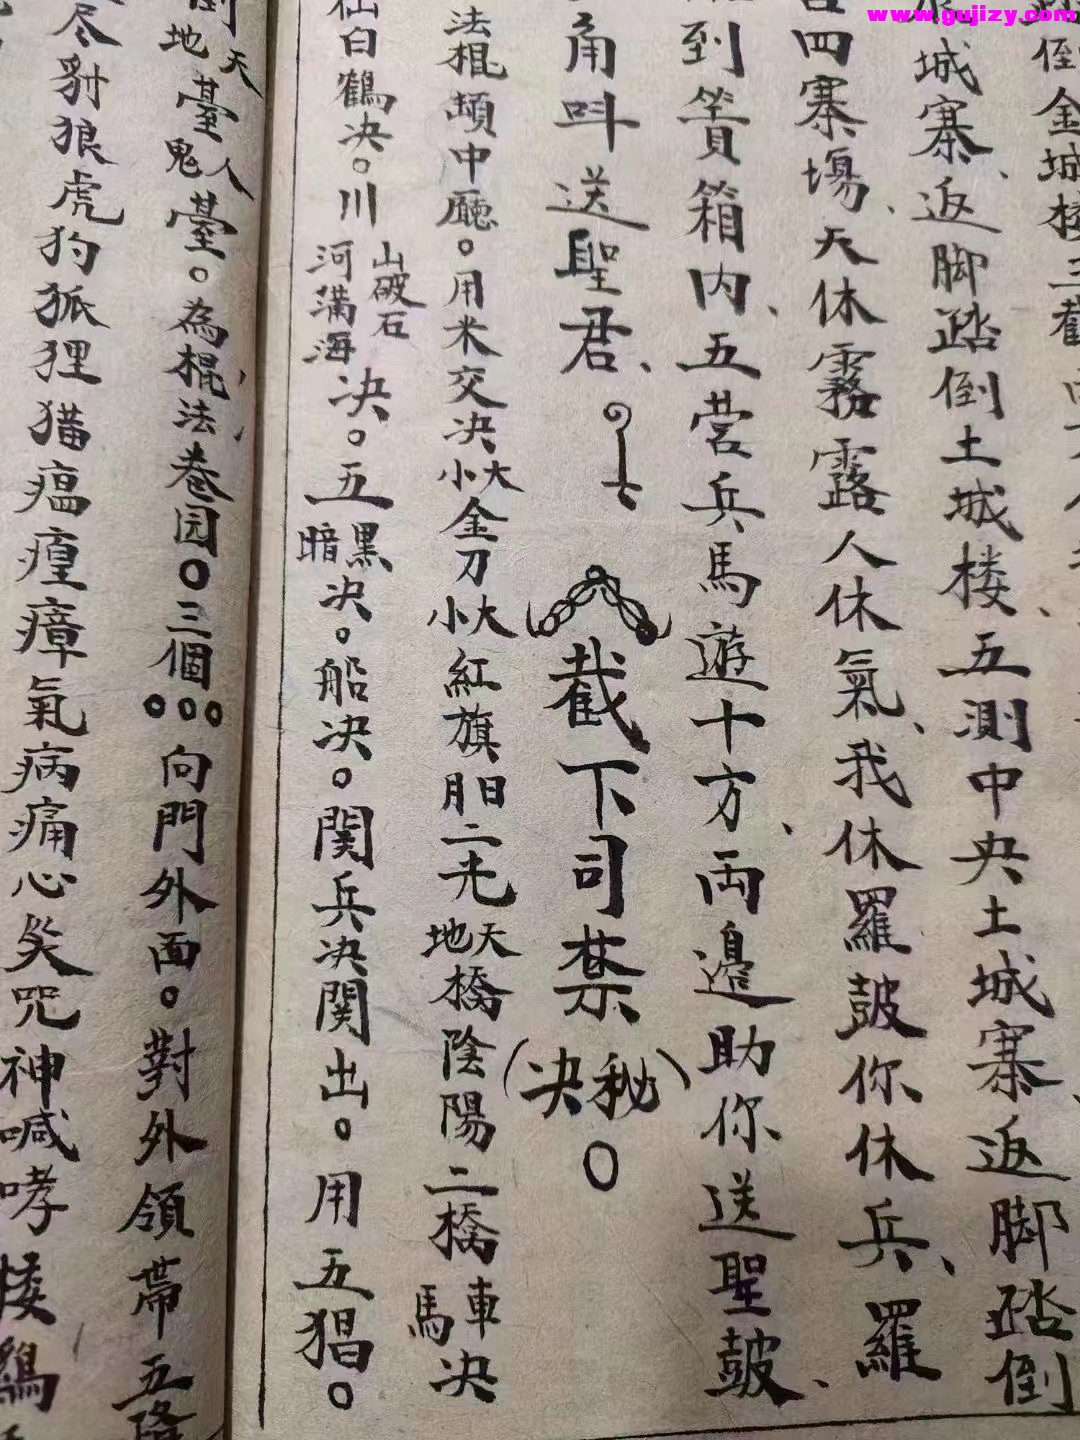 www.gujizy.com
侄金城楼三截
城寨、返脚踏倒土城楼、五測中央土城寨、返脚踏倒
四寨場、天休霧露人休氣、我休羅鼓你休兵、羅
到篢箱内、五营兵馬遊十方、両邉助你送聖鼓、
角呌送聖君、
截下司禁(秘决)○
法棍頡中廳。用米交决大小金刀大小紅旗日月二光天地橋陰陽二橋車馬决
仙白鶴决。川山破石河满海决。五黑暗决。船决。関兵决関出。用五猖。
地天臺人鬼臺。為棍法卷园○三個○○○向門外面。對外領帯五
尽豺狼虎狗狐狸猫瘟瘟瘴氣病痛心笑咒神喊哮楼鷄